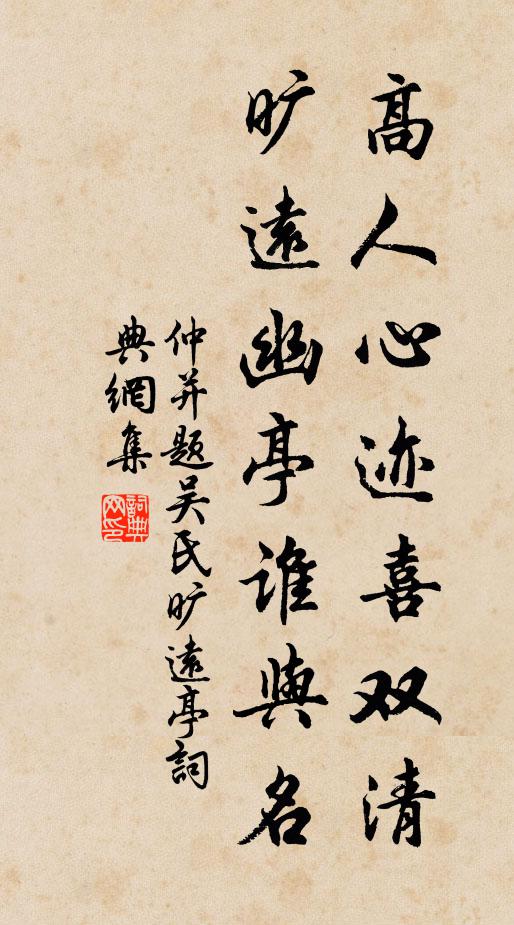 高人心迹喜双清
旷遠幽亭谁與名
仲并题吴氏旷遠亭詞
典網集
詞典网印